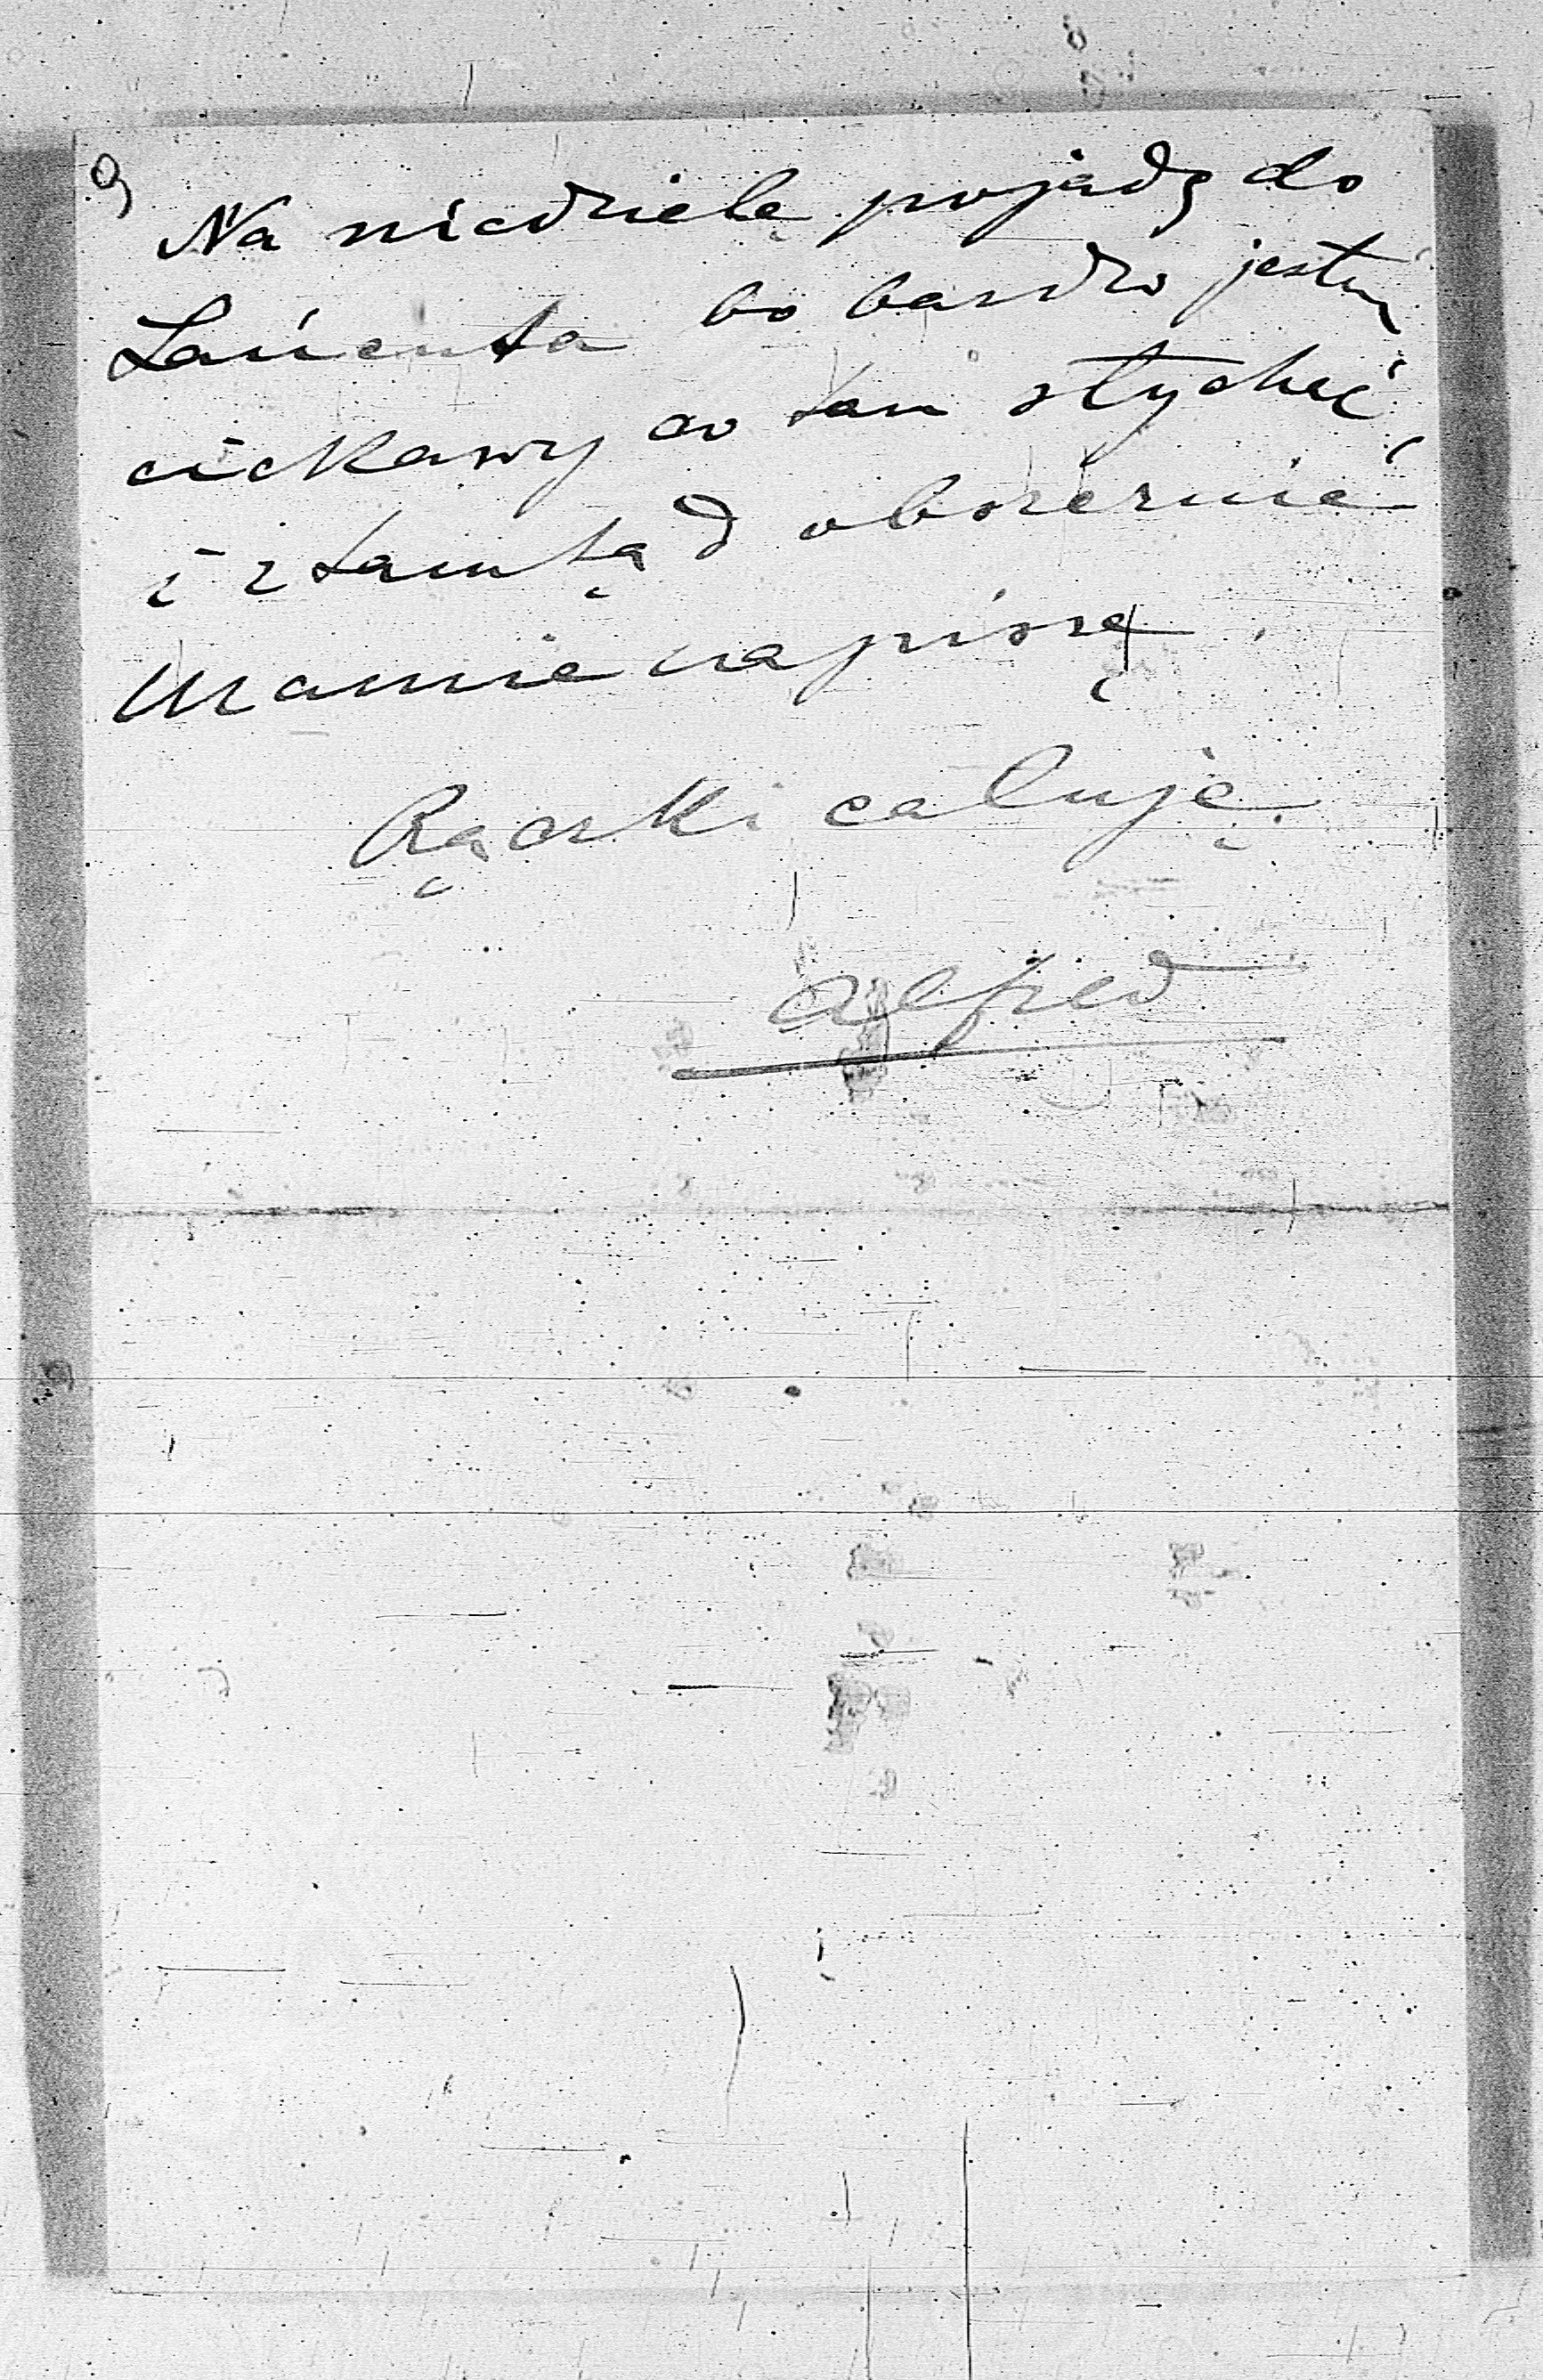 9
Na niedzielę pojadę do
Łańcuta bo bardzo jestem
ciekawy co tam słychać,
i z tamtąd obszernie
Mamie napiszę.
Rączki całuję
Alfred